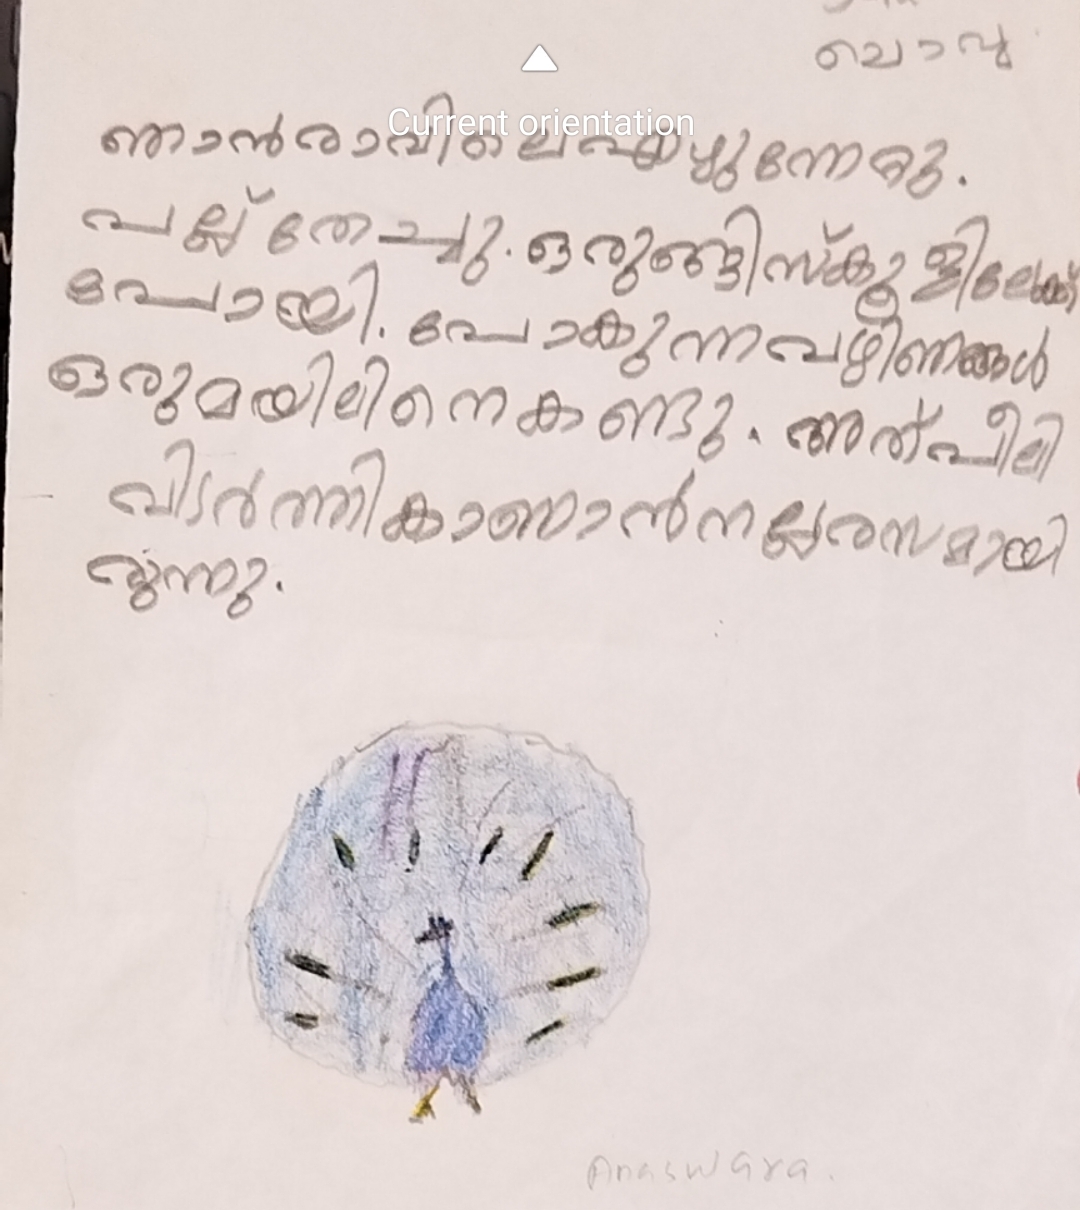 ചൊവ്വ
Current orientation
ഞാൻ രാവിലെ എഴുന്നേറ്റു.
പല്ല് തേച്ചു. ഒരുങ്ങി സ്കൂളിലേക്ക്
പോയി. പോകുന്ന വഴി ഞങ്ങൾ
ഒരു മയിലിനെ കണ്ടു. അത് പീലി
വിടർത്തി കാണാൻ നല്ല രസമായി
രുന്നു.
Anaswara.